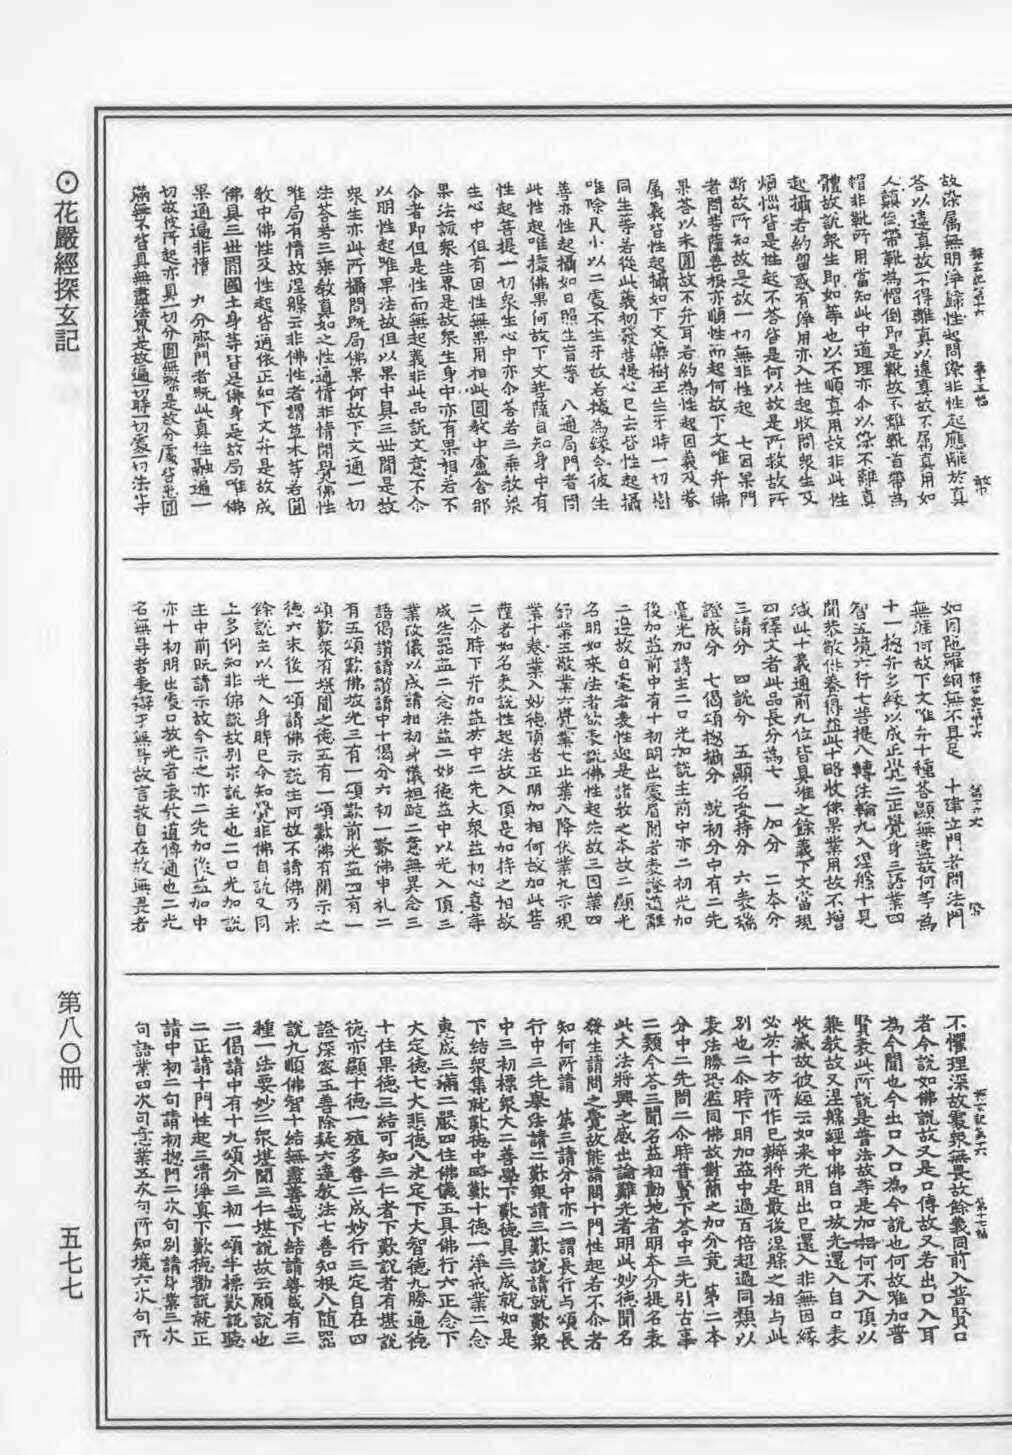 故染属無明淨歸性起問染非性起應離於真
荅以違真故不得離真以違真故不属真用如
人顛倒帶靴為帽倒即是靴故不離靴首帶為
帽非靴所用當知此中道理亦尒以染不離真
體故說衆生即如等也以不順真用故非此性
起攝若約留惑有淨用亦入性起收問衆生及
煩惱皆是性起不荅皆是何以故是所救故所
斷故所知故是故一切無非性起　七因果門
者問菩薩善根亦順性而起何故下文唯弁佛
果荅以未圓故不弁耳若約為性起因義及眷
属義皆性起攝如下文藥樹王生牙時一切樹
同生等若從此義初發菩提心已去皆性起攝
唯除凡小以二處不生牙故若據為緣令彼生
善亦性起攝如日照生盲等　八通局門者問
此性起唯據佛果何故下文菩薩自知身中有
性起菩提一切衆生心中亦尒荅若三乘教衆
生心中但有因性無果用相此圓教中盧舍那
果法該衆生界是故衆生身中亦有果相若不
尒者即但是性而無起義非此品說文意不尒
以明性起唯果法故但以果中具三世間是故
衆生亦此所攝問既局佛果何故下文通一切
法荅若三乘教真如之性通情非情開覺佛性
唯局有情故涅槃云非佛性者謂草木等若圓
教中佛性及性起皆通依正如下文弁是故成
佛具三世間國土身等皆是佛身是故局唯佛
果通遍非情　九分齊門者既此真性融遍一
切故彼所起亦具一切分圓無際是故分處皆悉圓
滿無不皆具無盡法界是故遍一切時一切處一切法等
如因陁羅網無不具足　十建立門者問法門
無涯何故下文唯弁十種荅顯無盡故何等為
十一揔弁多緣以成正覺二正覺身三語業四
智五境六行七菩提八轉法輪九入涅槃十見
聞恭敬供養得益此十略收佛果業用故不增
減此十義通前九位皆具准之餘義下文當現
四釋文者此品長分為七　一加分　二本分
三請分　四說分　五顯名受持分　六表瑞
證成分　七偈頌揔攝分　就初分中有二先
毫光加請主二口光加說主前中亦二初光加
後加益前中有十初明出處眉間者表證道離
二邊故白毫者表性起是諸教之本故二顯光
名明如來法者欲表說佛性起法故三因業四
舒業五敬業六覺業七止業八降伏業九示現
業十卷業入妙德頂者正明加相何故加此菩
薩者如名表說性起法故入頂是加持之相故
二尒時下弁加益於中二先大衆益初心喜等
成生器益二念法益二妙德益中以光入頂三
業改儀以成請相初身儀袒跪二意無異念三
語偈讃請讃請中十偈分六初一歎佛申礼二
有五頌歎佛放光三有一頌歎前光益四有一
頌歎衆有堪聞之德五有一頌歎佛有開示之
德六末後一頌請佛示說主何故不請佛乃求
餘說主以光入身時已令知覺非佛自說又同
上多例知非佛說故別求說主也二口光加說
主中前既請示故今示之亦二先加後益加中
亦十初明出處口放光者表教道傳通也二光
名無㝵者表辯才無㝵故言教自在故無畏者
不懼理深故處衆無畏故餘義同前入普賢口
者令說如佛說故又是口傳故又若出口入耳
為令聞也今出口入口為令說也何故唯加普
賢表此所說是普法故等是加相何不入頂以
難教故又涅槃經中佛自口放光還入自口表
收滅故彼經云如來光明出已還入非無因緣
必於十方所作已辦將是最後涅槃之相与此
別也二尒時下明加益中過百倍超過同類以
表法勝恐濫同佛故對簡之加分竟　第二本
分中二先問二尒時普賢下荅中三先引古事
二類今荅三聞名益初動地者明本分提名表
此大法將興之感出論難光者明此妙德聞名
發生請問之覺故能請問十門性起若不尒者
知何所請　第三請分中亦二謂長行与頌長
行中三先舉法請二歎衆請三歎說請就歎衆
中三初標衆大二善學下歎德具三成就如是
下結衆集就歎德中略歎十德一淨戒業二念
惠成三滿二嚴四住佛儀五具佛行六正念下
大定德七大悲德八決定下大智德九勝通德
十住果德三結可知三仁者下歎說者有堪說
德亦顯十德一殖多善二成妙行三定自在四
證深密五善除疑六達教法七善知根八随器
說九順佛智十結無盡善哉下結請普哉有三
種一法要妙二衆堪聞三仁堪說故云願說也
二偈請中有十九頌分三初一頌半標歎說聽
二正請十門性起三清淨真下歎德勸說就正
請中初二句請初揔門二次句別請身業三次
句語業四次句意業五次句所知境六次句所
⊙花嚴經探玄記
第八〇冊
五七七